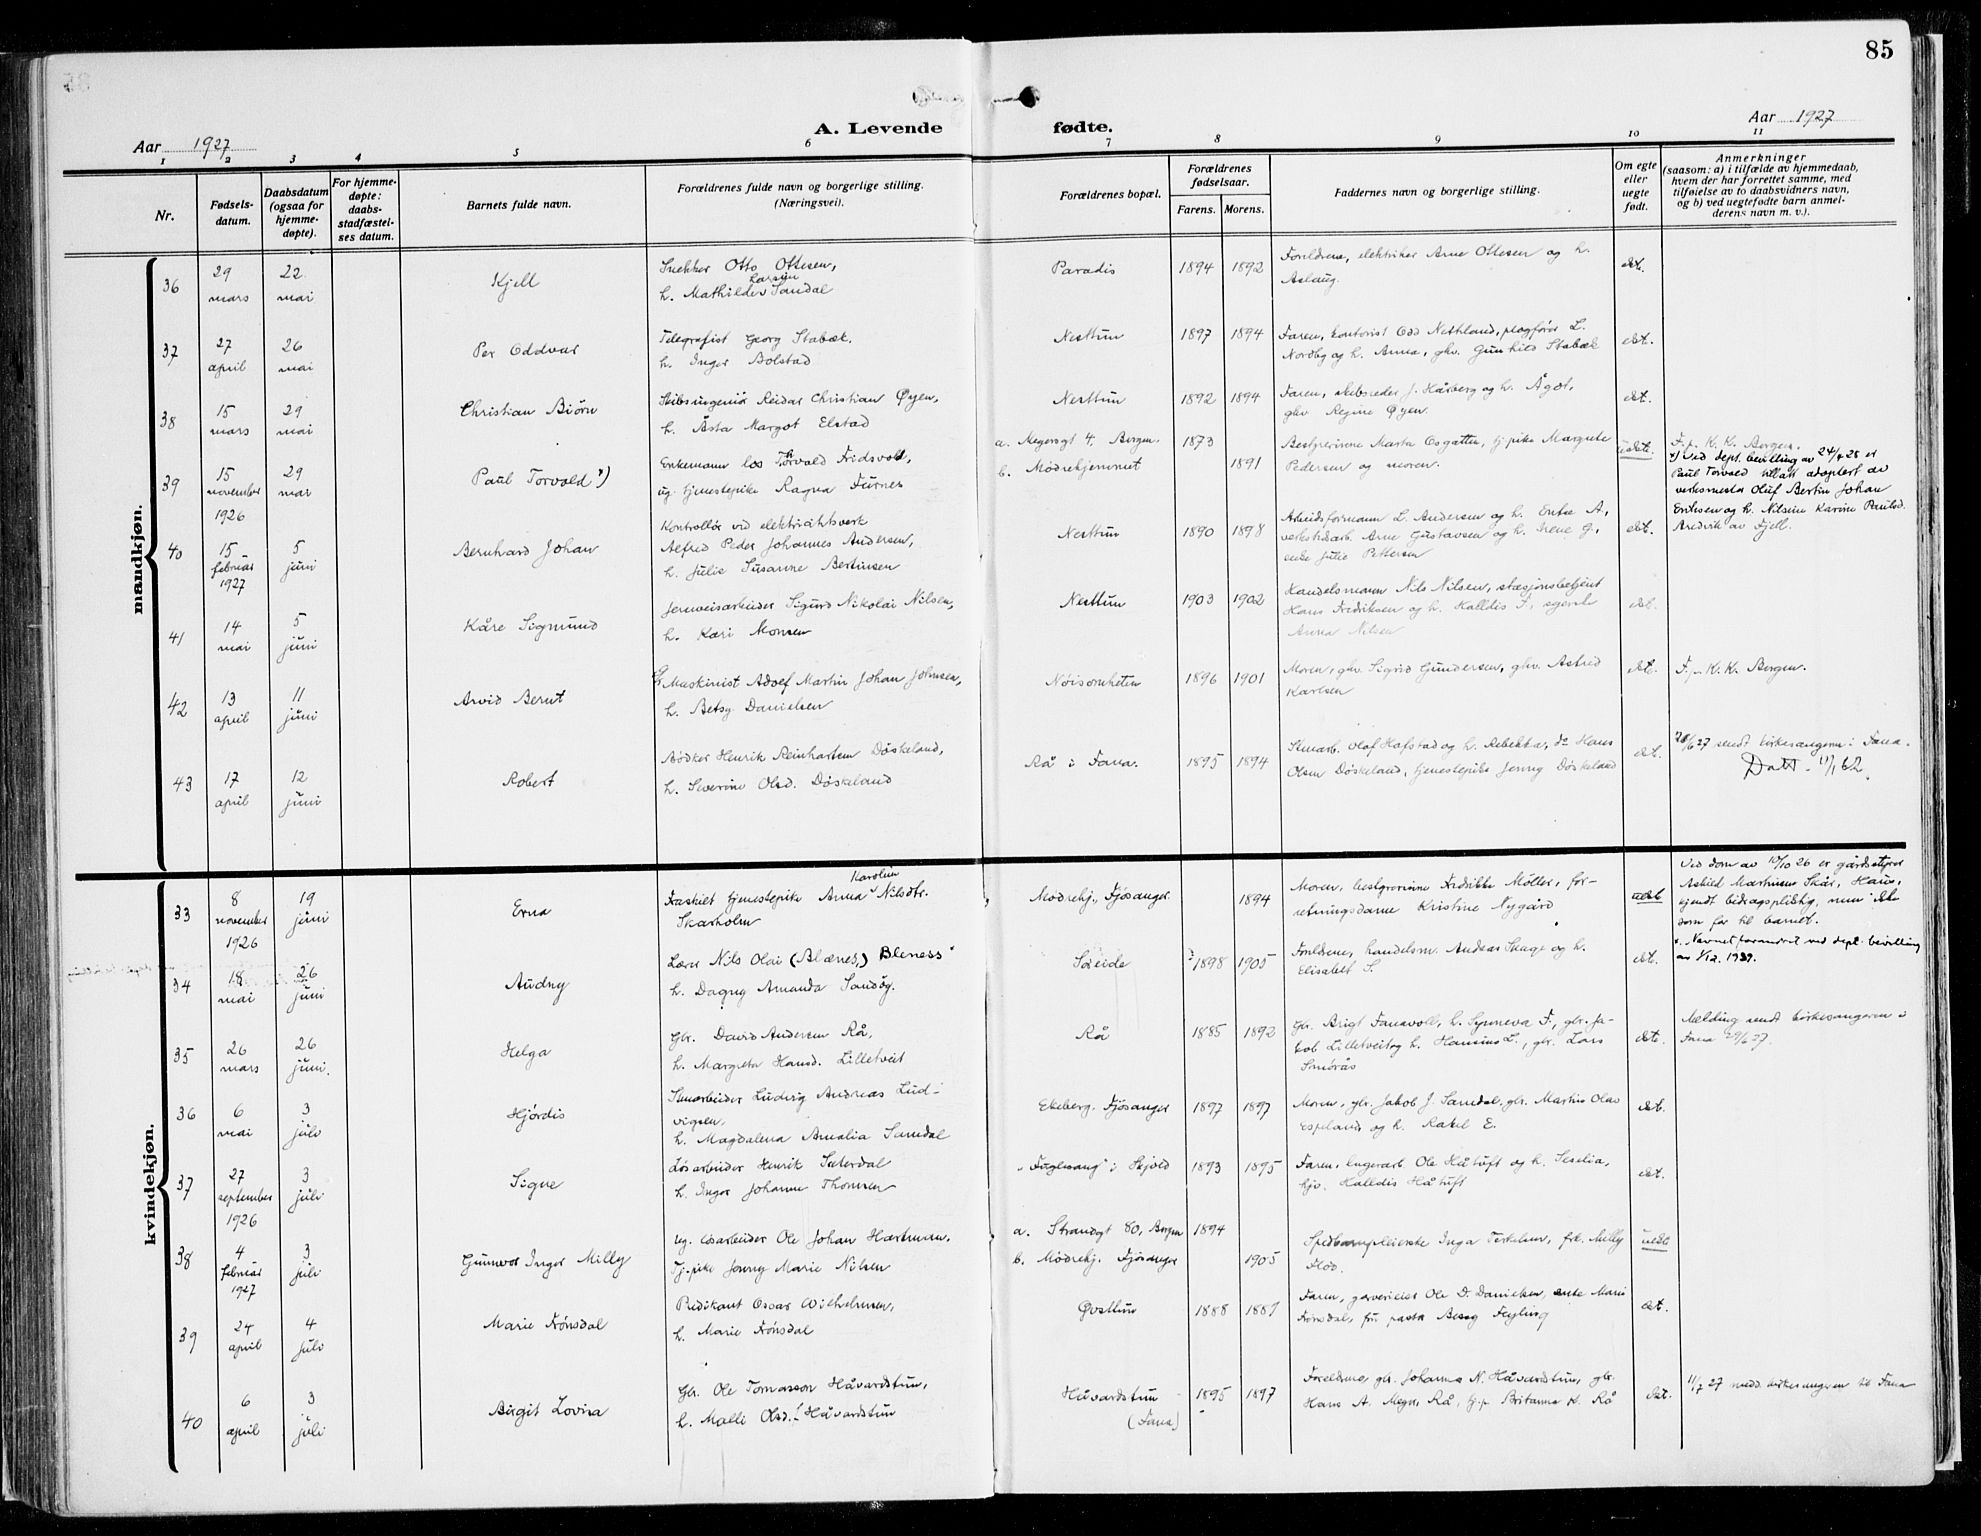 85
A. Levende fødte.
Aar 1927
Aar 1927
1 2 3 4 5 6 7 8 9 10 11
Nr.
Fødsels-
datum.
Daabsdatum
(ogsaa for
hjemme-
døpte).
For hjemme-
døpte:
daabs-
stadfæstel-
ses datum.
Barnets fulde navn.
Forældrenes fulde navn og borgerlige stilling.
(Næringsvei).
Forældrenes bopæl.
Forældrenes
fødselsaar.
Farens. Morens.
Faddernes navn og borgerlige stilling.
Om egte
eller
uegte
født.
Anmerkninger
(saasom: a) i tilfælde av hjemmedaab,
hvem der har forrettet samme, med
tilføielse av to daabsvidners navn,
og b) ved uegtefødte barn anmel-
derens navn m. v.).
mandkjøn.
36
29
mars
22
mai
Kjell
Snekker Otto Ottesen,
h. Mathilde Larsen Sandal
Paradis
1894 1892
Foreldrene, elektriker Arne Ottesen og h.
Aslaug.
ekt.
37
27
april
26
mai
Per Oddvar
Telegrafist Georg Stabæk,
h. Inger Bolstad
Nesttun
1897 1894
Faren, kontorist Odd Nesthand, plogfører L.
Nordby og h. Anna, ghv. Gunhild Stabæk
ekt.
38
15
mars
29
mai
Christian Biørn
Skibsingeniør Reidar Christian Øyen,
h. Åsta Margot Elstad
Nesttun
1892 1894
Faren, skibsreder J. Hårberg og h. Ågot,
ghv Regine Øyen.
ekt.
39
15
november
1926
29
mai
Paul Torvald *)
Enkemann løs Torvald Fridsvold,
ug. tjenestepike Ragna Furnes
a. Meyersgt 4, Bergen.
b. Mødrehjemmet
1873
1891
Bestyrerinne Marta Osgatten, tj.pike Margrete
Pedersen og moren.
uekte.
F. p. K. K. Bergen.
*) Ved dept. bevilling av 24/4 28 er
Paul Torvald tillatt adoptert av
verksmester Oluf Bertin Johan
Eriksen og h. Nilsine Karine Paulsd.
Aredvik av Fjell.
40
15
februar
1927
5
juni
Bernhard Johan
Kontrollør ved elektricitetsverk
Alfred Peder Johannes Andersen,
h. Julie Susanne Bertinsen
Nesttun
1890 1898
Arbeidsformann L. Andersen og h. Enke A,
verkstedarb. Arne Gustavsen og h. Irene G.,
enke Julie Pettersen
ekt.
41
14
mai
5
juni
Kåre Sigmund
Jernveisarbeider Sigurd Nikolai Nilsen,
h. Kari Monsen
Nesttun
1903 1902
Handelsmann Nils Nilsen, stasjonsbetjent
Hans Fredriksen og h. Halldis F,
Anna Nilsen
ekt.
42
13
april
11
juni
Arvid Bernt
Maskinist Adolf Martin Johan Johnsen,
h. Betsy Danielsen
Nøisomheten
1896 1901
Moren, ghv. Sigrid Gundersen, ghv. Astrid
Karlsen
ekt.
F. p. K. K. Bergen.
43
17
april
12
juni
Robert
Bødker Henrik Reinhartsen Døskeland,
h. Severine Olsd. Døskeland
Rå i Fana.
1895 1894
Stenarb. Olaf Hafstad og h. Rebekka, do Hans
Olsen Døskeland, tjenestepike Jenny Døskeland
ekt.
28/6 27 sendt kirkesangeren i Fana.
Datt. 11/1 62.
kvindekjøn.
33
8
november
1926
19
juni
Erna
Fraskilt tjenestepike Anna Karoline Nilsdtr.
Skarholm
Mødrehj., Fjøsanger
1894
Moren, bestyrerinne Fredrikke Møller, for-
retningsdame Kristine Nygård
uekt
Ved dom av 10/10 26 er gårdsstyrer
Askild Martinsen Skår, Haus,
kjendt bidragspliktig, men ikke
som far til barnet.
34
18
mai
26
juni
Audny
Lærer Nils Olai (Blænes,) Bleness*
h. Dagny Amanda Sandøy.
Søreide
1898 1905
Foreldrene, handelsm. Andreas Skage og h.
Elisabet S.
ekt.
*. Navnet forandret ved dept. bevilling
av 1/12. 1939.
35
26
mars
26
juni.
Helga
Gbr. David Andersen Rå,
h. Margreta Hansd. Lilletveit
Rå
1885 1892
Gbr. Brigt Fanavoll, h. Synneva F., gbr. Ja-
kob Lilletveit og h. Hansine L., gbr. Lars
Smørås
ekt.
Melding sendt kirkesangeren i
Fana 29/6 27.
36
6
mai
3
juli
Hjørdis
Stenarbeider Ludvig Andreas Lud-
vigsen,
h. Magdalena Amalia Sandal
Ekeberg, Fjøsanger
1897 1897
Moren, gbr. Jakob J. Sandal, gbr. Martin Olas
Espeland og h. Rakel E.
ekt.
37
27
september
1926
3
juli
Signe
Løsarbeider Henrik Seterdal
h. Inger Johanne Thomsen
"Fuglesang" i Skjold
1893 1895
Faren, Ole Håtuft og h. Seselia,
hjv. Halldis Håtuft
ekt.
38
4
februar
1927
3
juli
Gunnvor Inger Milly
ug. løsarbeider Ole Johan Hartmann,
Tj.pike Jenny Marie Nilsen
a. Strandgt 80, Bergen
b. Mødrehj. Fjøsanger
1894
1905
Spedbarnpleierske Inga Terkelsen, frk. Milly
Flod.
uekt
39
24
april
4
juli
Marie Frønsdal
Predikant Oscar Wilhelmsen,
h. Marie Frønsdal
Øvsttun
1888 1887
Faren, garverieier Ole D. Danielsen, enke Marie
Frønsdal, fru pasta Bessy Feyling
ekt.
40
6
april
3
juli
Birgit Lovisa
Gbr. Ole Tomasson Håvardstun,
h. Malli Olsd. Håvardstun
Håvardstun
(Fana)
1895 1897
Foreldrene, gbr. Johannes N. Håvardstun, gbr.
Hans A. Meyer, Rå, tj.p Britanna K. Rå
ekt.
11/7 27 medd. kirkesangeren til Fana